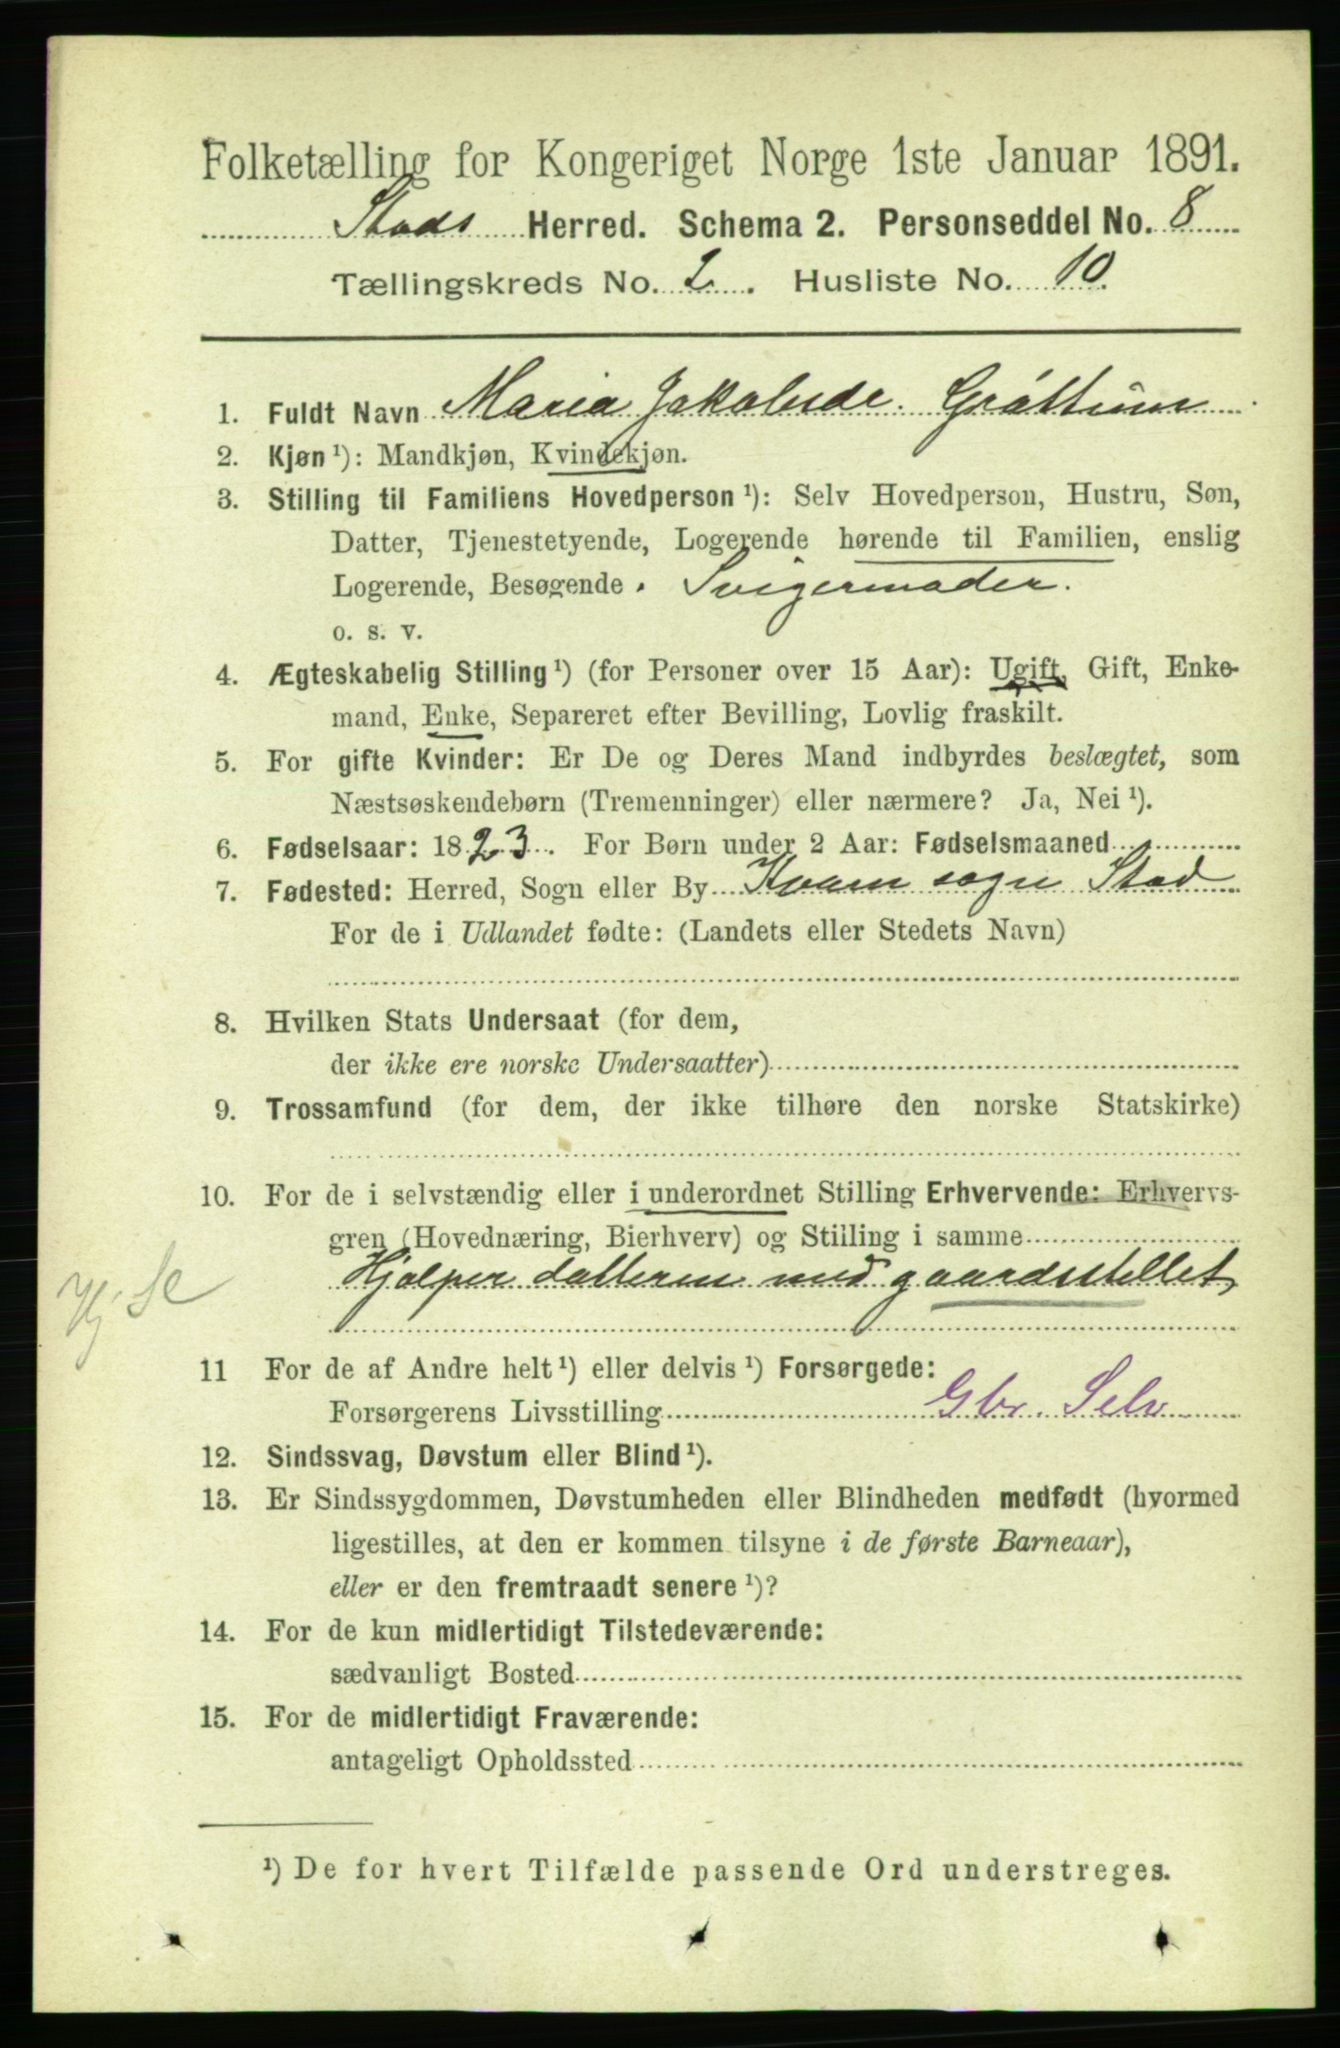 Folketælling for Kongeriget Norge 1ste Januar 1891.
Stods Herred. Schema 2. Personseddel No. 8
Tællingskreds No. 2. Husliste No. 10.
1. Fuldt Navn Maria Jakobsdr. Gråttum
2. Kjøn ¹): Mandkjøn, Kvindekjøn.
3. Stilling til Familiens Hovedperson ¹): Selv Hovedperson, Hustru, Søn,
Datter, Tjenestetyende, Logerende hørende til Familien, enslig
Logerende, Besøgende . Svigermoder.
o. s. v.
4. Ægteskabelig Stilling ¹) (for Personer over 15 Aar): Ugift, Gift, Enke-
mand, Enke, Separeret efter Bevilling, Lovlig fraskilt.
5. For gifte Kvinder: Er De og Deres Mand indbyrdes beslægtet, som
Næstsøskendebørn (Tremenninger) eller nærmere? Ja, Nei ¹).
6. Fødselsaar: 1823. For Børn under 2 Aar: Fødselsmaaned
7. Fødested: Herred, Sogn eller By Kvam sogn Stod
For de i Udlandet fødte: (Landets eller Stedets Navn)
8. Hvilken Stats Undersaat (for dem,
der ikke ere norske Undersaatter)
9. Trossamfund (for dem, der ikke tilhøre den norske Statskirke)
10. For de i selvstændig eller i underordnet Stilling Erhvervende: Erhvervs-
gren (Hovednæring, Bierhverv) og Stilling i samme
Hjælper datteren med gaardsstellet
Hj. Se
11 For de af Andre helt ¹) eller delvis ¹) Forsørgede:
Forsørgerens Livsstilling Gbr. Selv
12. Sindssvag, Døvstum eller Blind ¹).
13. Er Sindssygdommen, Døvstumheden eller Blindheden medfødt (hvormed
ligestilles, at den er kommen tilsyne i de første Barneaar),
eller er den fremtraadt senere ¹)?
14. For de kun midlertidigt Tilstedeværende:
sædvanligt Bosted
15. For de midlertidigt Fraværende:
antageligt Opholdssted
¹) De for hvert Tilfælde passende Ord understreges.